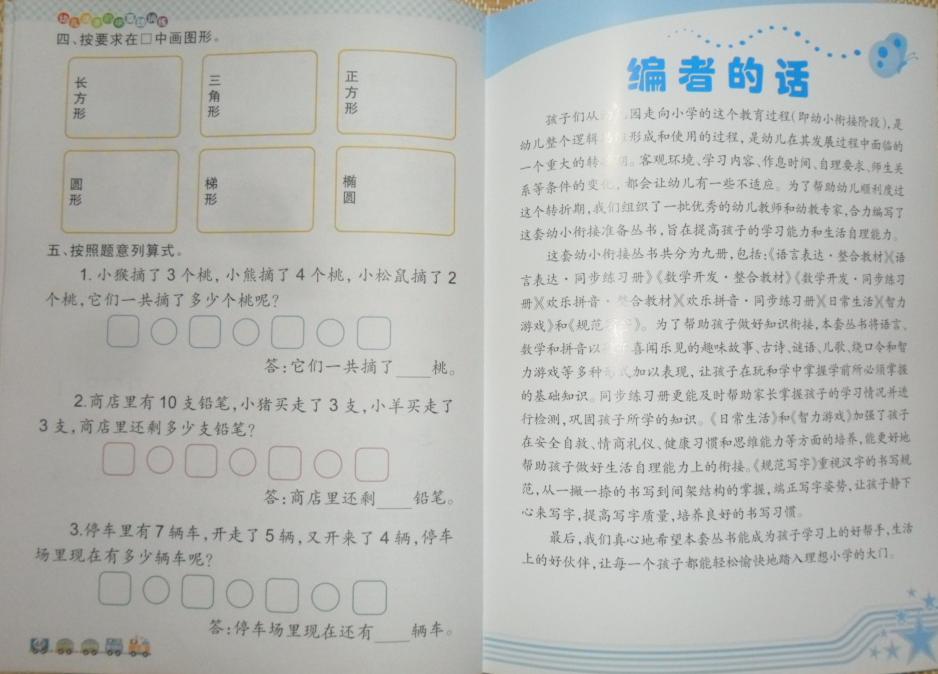 四、按要求在□中画图形。
长方形
三角形
正方形
圆形
梯形
椭圆
五、按照题意列算式。
1.小猴摘了3个桃,小熊摘了4个桃,小松鼠摘了2
个桃,它们一共摘了多少个桃呢?
答:它们一共摘了____桃。
2.商店里有10支铅笔,小猪买走了3支,小羊买走了
3支,商店里还剩多少支铅笔?
答:商店里还剩____铅笔。
3.停车里有7辆车,开走了5辆,又开来了4辆,停车
场里现在有多少辆车呢?
答:停车场里现在还有____辆车。
编者的话
孩子们从 园走向小学的这个教育过程(即幼小衔接阶段),是
幼儿整个逻辑 形成和使用的过程,是幼儿在其发展过程中面临的
一个重大的转 期。客观环境、学习内容、作息时间、自理要求、师生关
系等条件的变化,都会让幼儿有一些不适应。为了帮助幼儿顺利度过
这个转折期,我们组织了一批优秀的幼儿教师和幼教专家,合力编写了
这套幼小衔接准备丛书,旨在提高孩子的学习能力和生活自理能力。
这套幼小衔接丛书共分为九册,包括:《语言表达·整合教材》《语
言表达·同步练习册》《数学开发·整合教材》《数学开发·同步练习
册》《欢乐拼音·整合教材》《欢乐拼音·同步练习册》《日常生活》《智力
游戏》和《规范写字》。为了帮助孩子做好知识衔接,本套丛书将语言、
数学和拼音以 喜闻乐见的趣味故事、古诗、谜语、儿歌、绕口令和智
力游戏等多种形式加以表现,让孩子在玩和学中掌握学前所必须掌握
的基础知识。同步练习册更能及时帮助家长掌握孩子的学习情况并进
行检测,巩固孩子所学的知识。《日常生活》和《智力游戏》加强了孩子
在安全自救、情商礼仪、健康习惯和思维能力等方面的培养,能更好地
帮助孩子做好生活自理能力上的衔接。《规范写字》重视汉字的书写规
范,从一撇一捺的书写到间架结构的掌握,端正写字姿势,让孩子静下
心来写字,提高写字质量,培养良好的书写习惯。
最后,我们真心地希望本套丛书能成为孩子学习上的好帮手,生活
上的好伙伴,让每一个孩子都能轻松愉快地踏入理想小学的大门。